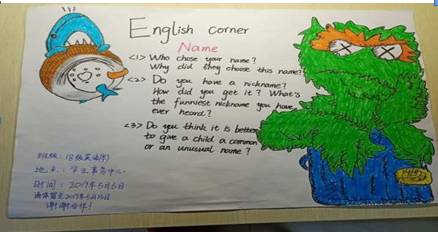 English corner
Name
<1> Who chose your name?
Why did they choose this name?
<2> Do you have a nickname?
How did you get it? What's
the funniest nickname you have
ever heard?
<3> Do you think it is better
to give a child a common
or an unusual name?
地点:学生事务中心
时间:2019年5月6日
谢谢合作!